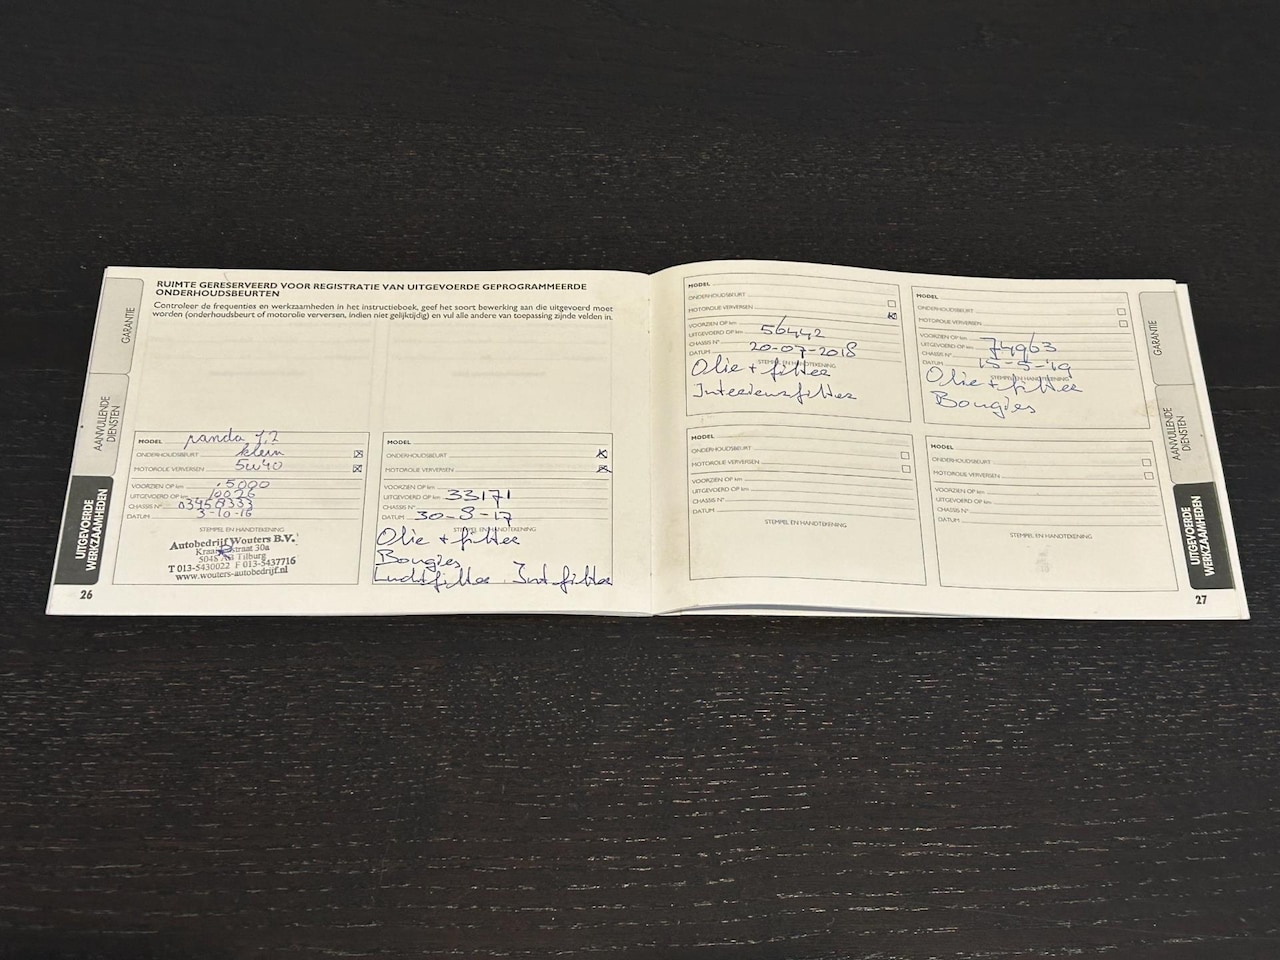 RUIMTE GERESERVEERD VOOR REGISTRATIE VAN UITGEVOERDE GEPROGRAMMEERDE
ONDERHOUDSBEURTEN
Controleer de frequenties en werkzaamheden in het instructieboek, geef het soort bewerking aan die uitgevoerd moet
worden (onderhoudsbeurt of motorolie verversen, indien niet gelijktijdig) en vul alle andere van toepassing zijnde velden in.
GARANTIE
AANVULLENDE
DIENSTEN
UITGEVOERDE
WERKZAAMHEDEN
MODEL panda 1,2
ONDERHOUDSBEURT klein
MOTOROLIE VERVERSEN 5w40
VOORZIEN OP km 15000
UITGEVOERD OP km 10026
CHASSIS N°
DATUM 3-10-16
STEMPEL EN HANDTEKENING
Autobedrijf Wouters B.V.
30a
Tilburg
T 013-5430022 F 013-5437716
www.wouters-autobedrijf.nl
MODEL
ONDERHOUDSBEURT
MOTOROLIE VERVERSEN
VOORZIEN OP km
UITGEVOERD OP km 33171
CHASSIS N°
DATUM 30-8-17
STEMPEL EN HANDTEKENING
Olie + filter
Bougies
Luchtfilter Int.filter
26
MODEL
ONDERHOUDSBEURT
MOTOROLIE VERVERSEN
VOORZIEN OP km
UITGEVOERD OP km 56442
CHASSIS N°
DATUM 20-07-2018
STEMPEL EN HANDTEKENING
Olie + filter
Interieurfilter
MODEL
ONDERHOUDSBEURT
MOTOROLIE VERVERSEN
VOORZIEN OP km
UITGEVOERD OP km 74963
CHASSIS N°
DATUM 15-5-'19
STEMPEL EN HANDTEKENING
Olie + filter
Bougies
MODEL
ONDERHOUDSBEURT
MOTOROLIE VERVERSEN
VOORZIEN OP km
UITGEVOERD OP km
CHASSIS N°
DATUM
STEMPEL EN HANDTEKENING
MODEL
ONDERHOUDSBEURT
MOTOROLIE VERVERSEN
VOORZIEN OP km
UITGEVOERD OP km
CHASSIS N°
DATUM
STEMPEL EN HANDTEKENING
GARANTIE
AANVULLENDE
DIENSTEN
UITGEVOERDE
WERKZAAMHEDEN
27